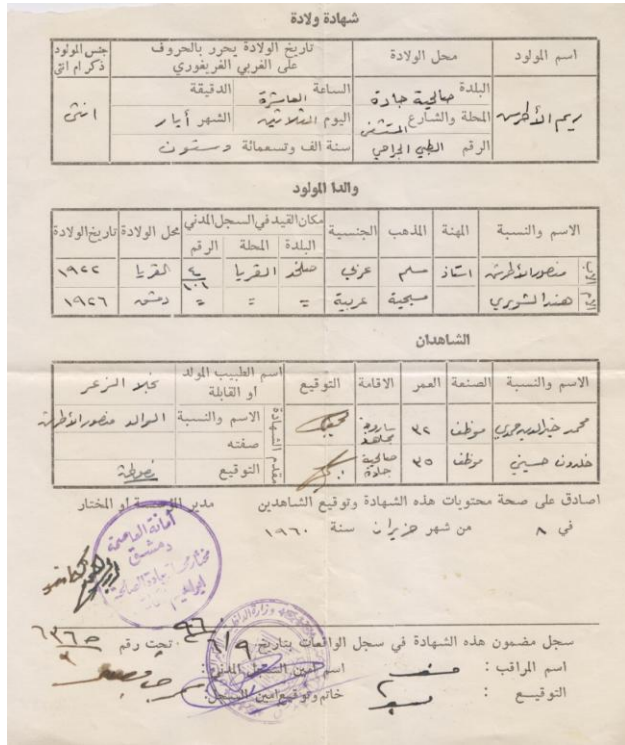 شهادة ولادة
اسم المولود
محل الولادة
تاريخ الولادة يحرر بالحروف
على الغربي الغريغوري
جنس المولود
ذكر ام انثى
ريم الأطرش
البلدة صالحية جادة
المحلة والشارع المستشفى
الرقم الطبي الجراحي
الساعة العاشرة الدقيقة
اليوم الثلاثين الشهر أيار
سنة الف وتسعمائة وستون
انثى
والدا المولود
الاسم والنسبة
المهنة
المذهب
الجنسية
مكان القيد في السجل المدني
البلدة
المحلة
الرقم
محل الولادة
تاريخ الولادة
الاب منصور الأطرش استاذ مسلم عربي صلخد القريا ٤/١٠١ القريا ١٩٢٢
الام هند الشويري مسيحية عربية = = = دمشق ١٩٢٦
الشاهدان
الاسم والنسبة
الصنعة
العمر
الاقامة
التوقيع
اسم الطبيب المولد
او القابلة
نجلا الزعر
محمد موظف ٣٢ ساروجة
خلدون حسيني موظف ٣٥ صالحية جادة
مقدم الشهادة
الاسم والنسبة الوالد منصور الأطرش
صفته
التوقيع
اصادق على صحة محتويات هذه الشهادة وتوقيع الشاهدين
مدير او المختار
في ٨ من شهر حزيران سنة ١٩٦٠
أمانة العاصمة
دمشق
سجل مضمون هذه الشهادة في سجل الواقعات بتاريخ تحت رقم
اسم المراقب :
اسم امين السجل المدني :
التوقيع :
خاتم وتوقيع امين السجل :